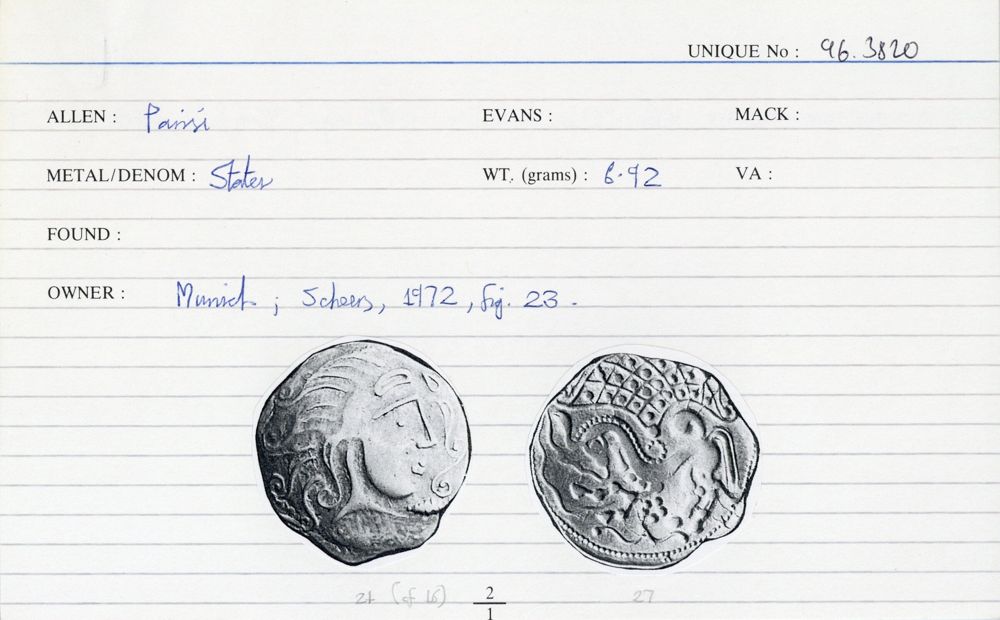 UNIQUE No : 96.3820
ALLEN : Parisi EVANS : MACK :
METAL/DENOM : Stater WT. (grams) : 6.92 VA :
FOUND :
OWNER : Munich ; Scheers, 1972, fig. 23.
21 (cf 16) 2/1 27